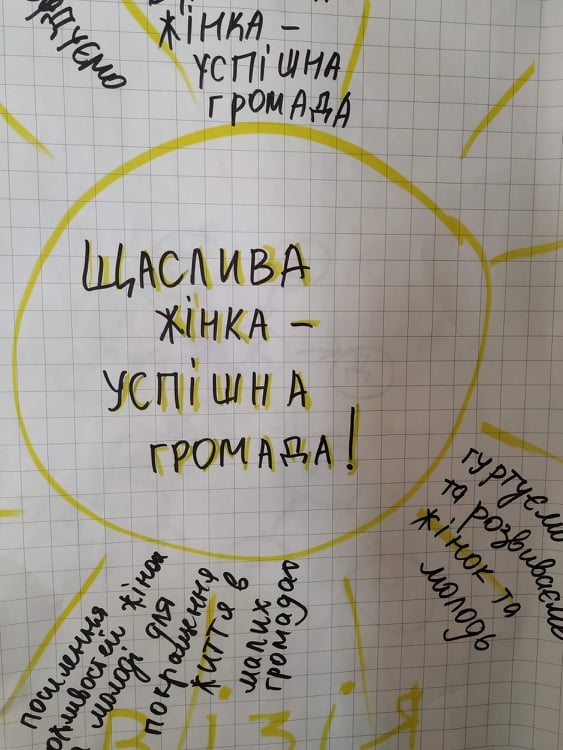 ЖІНКА –
УСПІШНА
ГРОМАДА
ЩАСЛИВА
ЖІНКА –
УСПІШНА
ГРОМАДА!
гуртуємо
та розвиваємо
жінок та
молодь
посилення
жінок
молоді для
покращення
життя в
малих
громадах
Візія